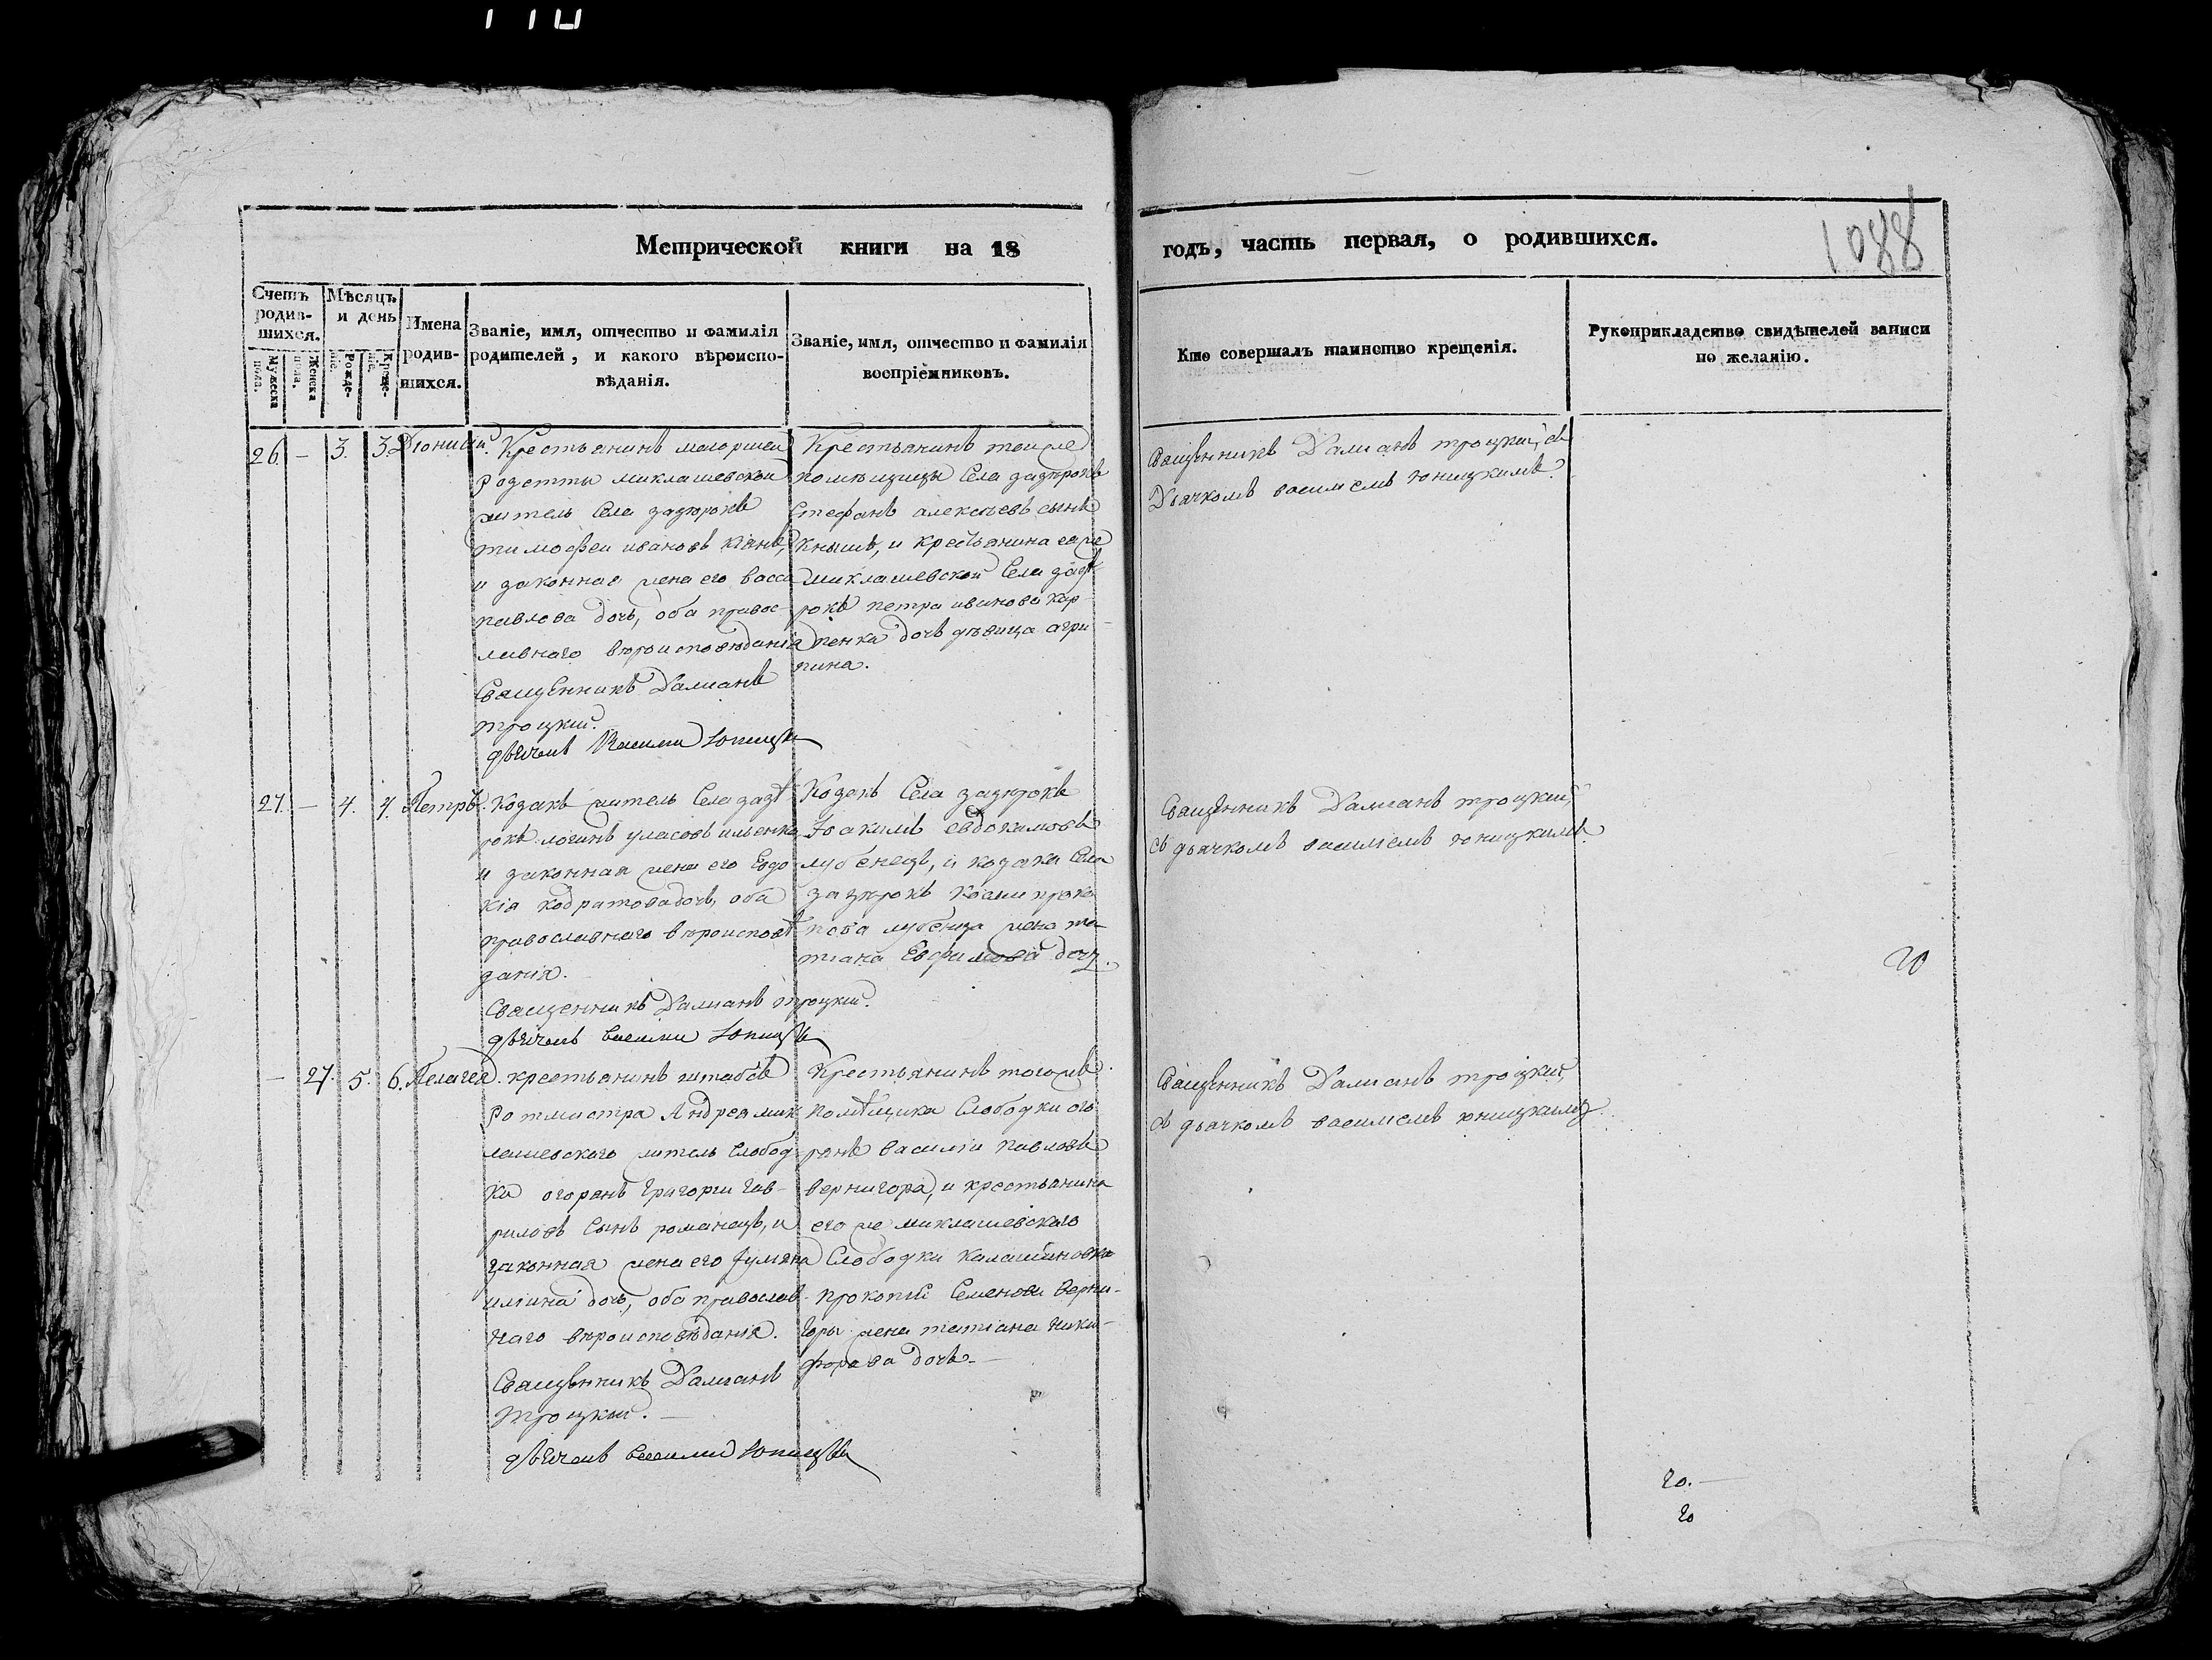 Метрической книги на 18
годъ, часть первая, о родившихся.
1088
Счетъ родив-шихся.
Мѣсяцъ и день
Имена родив-шихся.
Званіе, имя, отчество и фамилія
родителей, и какого вѣроиспо-
вѣданія.
Званіе, имя, отчество и фамилія
воспріемниковъ.
Кто совершалъ таинство крещенія.
Рукоприкладство свидѣтелей записи
по желанію.
Мужеска пола.
Женска пола.
Рожде-нія.
Креще-нія.
26. — 3. 3. Діонисій.
Крестьянинъ маіорши
Розетты миклашевской
житель Села зазирокъ
тимофеи ивановъ
и законная жена его васса
павлова дочь, оба правос-
лавнаго вѣроисповѣданія
Священникъ Даміанъ
троцкій.
дьячокъ Василий Юницки
Крестьянинъ той же
помѣщицы Села зазирокъ
Стефанъ алексѣевъ сынъ
Кнышъ, и крестьянина ея же
Миклашевской Села зазѣ
рокъ петра иванова кар-
пенка дочь дѣвица агри
пина.
Священникъ Даміанъ троцкий, съ
Дьячкомъ василіемъ юницкимъ.
27. — 4. 4. Петръ.
Козакъ житель Села зазѣ
рокъ логинъ уласовъ ильенко
и законная жена его Евдо
кія кодратова дочь, оба
православнаго вѣроисповѣ
данія.
Священникъ Даміанъ троцкій.
дьячокъ василии Юницки
Козакъ Села зазирокъ
Іоакимъ евдокимовъ
лубенецъ, и козака Села
зазирокъ Косми проко
пова лубенца жена та-
тіана Евфимова дочь.
Священникъ Даміанъ троцкий,
съ дьячкомъ василіемъ юницкимъ.
20
— 27. 5. 6. Пелагея.
крестьянинъ штабсъ
Ротмистра Андрея мик
лашевского житель слобод
ки огоранъ григории гав-
риловъ Сынъ романецъ, и
законная жена его Іуліяна
илліина дочь, оба православ-
наго вѣроисповѣданія.
Священникъ Даміанъ
троцкий. —
дьячокъ василий Юницки
Крестьянинъ того же
помѣщика Слободки ого
ранъ василіи павловъ
вернигора, и крестьянина
его же миклашевского
Слободки Калашиновки
прокопій Семенова верни-
горы жена татіана ники-
форова дочь. —
Священникъ Даміанъ троцкий,
съ дьячкомъ василіемъ юницкимъ.
20. —
20